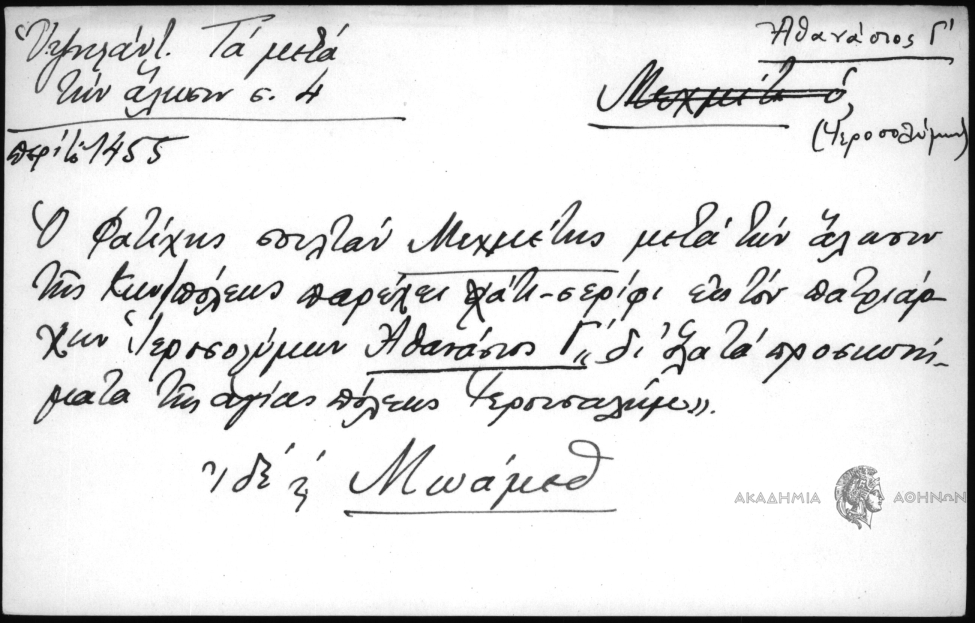 Ὑψηλάντ. Τά μετά
τήν ἅλωσιν σ. 4
περί τό 1455
Ἀθανάσιος Γ'
Μεχμέτ Β',
(Ἱεροσολύμων)
Ὁ Φατίχης σουλτάν Μεχμέτης μετά τήν ἅλωσιν
τῆς Κων/πόλεως παρέχει χάτι-σερίφι εἰς τόν πατριάρ-
χην Ἱεροσολύμων Ἀθανάσιος Γ' "δι' ὅλα τά προσκυνή-
ματα τῆς ἁγίας πόλεως Ἱερουσαλήμ".
ἰδέ ἐ Μωάμεθ
ΑΚΑΔΗΜΙΑ ΑΘΗΝΩΝ